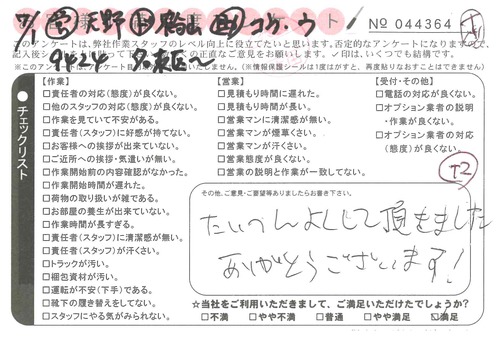 7/1 天野
№ 044364
9425 久来区へ
このアンケートは、弊社作業スタッフのレベル向上に役立てたいと思います。否定的なアンケートになりますので、
※このアンケートは
(※情報保護シールは1度はがすと、再度貼りなおすことはできません)
●チェックリスト
【作業】
□責任者の対応(態度)が良くない。
□他のスタッフの対応(態度)が良くない。
□作業を見ていて不安がある。
□責任者(スタッフ)に好感が持てない。
□お客様への挨拶が出来ていない。
□ご近所への挨拶・気遣いが無い。
□作業開始前の内容確認がなかった。
□作業開始時間が遅れた。
□荷物の取り扱いが雑である。
□お部屋の養生が出来ていない。
□作業時間が長すぎる。
□責任者(スタッフ)に清潔感が無い。
□責任者(スタッフ)が汗くさい。
□トラックが汚い。
□梱包資材が汚い。
□運転が不安(下手)である。
□靴下の履き替えをしてない。
□スタッフにやる気がみられない。
【営業】
□見積もり時間に遅れた。
□見積もり時間が長い。
□営業マンに清潔感が無い。
□営業マンが煙草くさい。
□営業マンが汗くさい。
□営業態度が良くない。
□営業の説明と作業が一致してない。
【受付・その他】
□電話の対応が良くない。
□オプション業者の説明
・作業が良くない。
□オプション業者の対応
(態度)が良くない。
T2
その他、ご意見・ご要望等ありましたらお書き下さい。
たいへんよくして頂きました
ありがとうございます!
☆当社をご利用いただきまして、ご満足いただけたでしょうか?
□不満 □やや不満 □普通 □やや満足 ☑満足